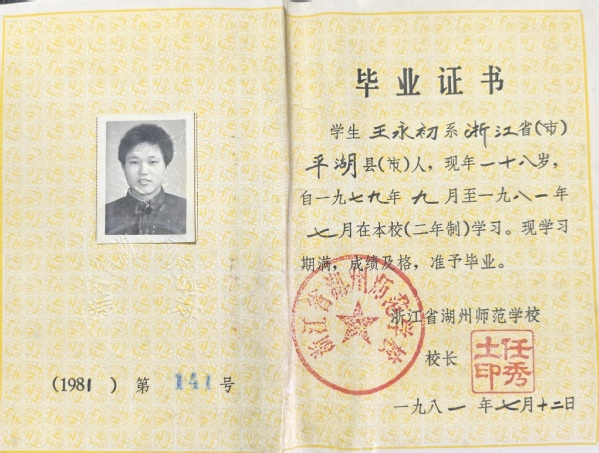 (1981) 第 141 号
毕业证书
学生王永初系浙江省(市)
平湖县(市)人，现年一十八岁，
自一九七九年九月至一九八一年
七月在本校(二年制)学习。现学习
期满，成绩及格，准予毕业。
浙江省湖州师范学校
浙江省湖州师范学校
校长
任秀士印
一九八一年七月十二日